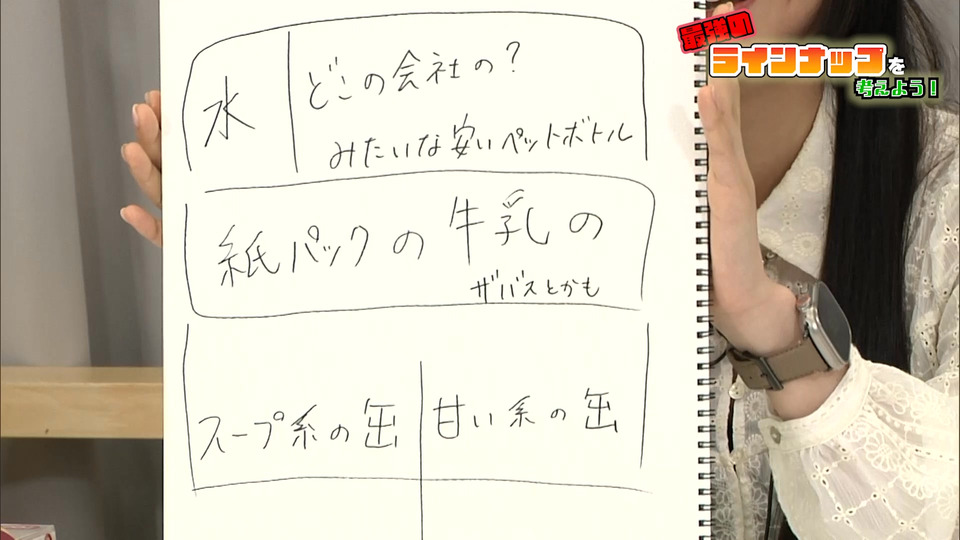 最強の
ラインナップを
考えよう！
水
どこの会社の？
みたいな安いペットボトル
紙パックの牛乳の
ザバスとかも
スープ系の缶
甘い系の缶